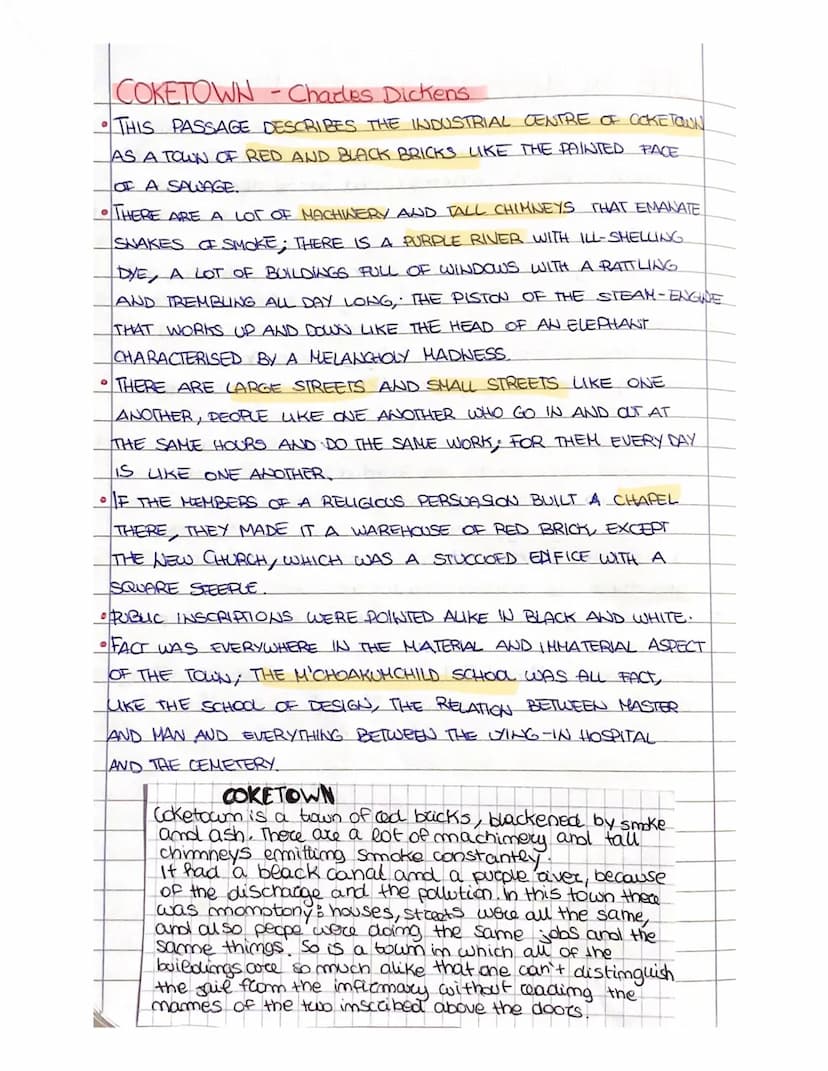 COKETOWN - Charles Dickens
• THIS PASSAGE DESCRIBES THE INDUSTRIAL CENTRE OF COKETOWN
AS A TOWN OF RED AND BLACK BRICKS LIKE THE PAINTED FACE
OF A SAVAGE.
• THERE ARE A LOT OF MACHINERY AND TALL CHIMNEYS THAT EMANATE
SNAKES OF SMOKE; THERE IS A PURPLE RIVER WITH ILL-SHELLING
DYE, A LOT OF BUILDINGS FULL OF WINDOWS WITH A RATTLING
AND TREMBLING ALL DAY LONG, THE PISTON OF THE STEAM-ENGINE
THAT WORKS UP AND DOWN LIKE THE HEAD OF AN ELEPHANT
CHARACTERISED BY A MELANCHOLY MADNESS.
• THERE ARE LARGE STREETS AND SMALL STREETS LIKE ONE
ANOTHER, PEOPLE LIKE ONE ANOTHER WHO GO IN AND OUT AT
THE SAME HOURS AND DO THE SAME WORK; FOR THEM EVERY DAY
IS LIKE ONE ANOTHER.
• IF THE MEMBERS OF A RELIGIOUS PERSUASION BUILT A CHAPEL
THERE, THEY MADE IT A WAREHOUSE OF RED BRICK, EXCEPT
THE NEW CHURCH, WHICH WAS A STUCCOED EDIFICE WITH A
SQUARE STEEPLE.
• PUBLIC INSCRIPTIONS WERE POINTED ALIKE IN BLACK AND WHITE.
• FACT WAS EVERYWHERE IN THE MATERIAL AND IMMATERIAL ASPECT
OF THE TOWN; THE M'CHOAKUMCHILD SCHOOL WAS ALL FACT,
LIKE THE SCHOOL OF DESIGN, THE RELATION BETWEEN MASTER
AND MAN AND EVERYTHING BETWEEN THE LYING-IN HOSPITAL
AND THE CEMETERY.
COKETOWN
Coketown is a town of red bucks, blackened by smoke
and ash. There are a lot of machinery and tall
chimneys emitting smoke constantey.
It had a beack canal and a purple river, because
of the discharge and the pollution. In this town there
was monotony: houses, streets were all the same,
and also peope were doing the same jobs and the
same things. So is a town in which all of the
buildings are so much alike that one can't distinguish
the jail from the infirmary without reading the
names of the two inscribed above the doors.